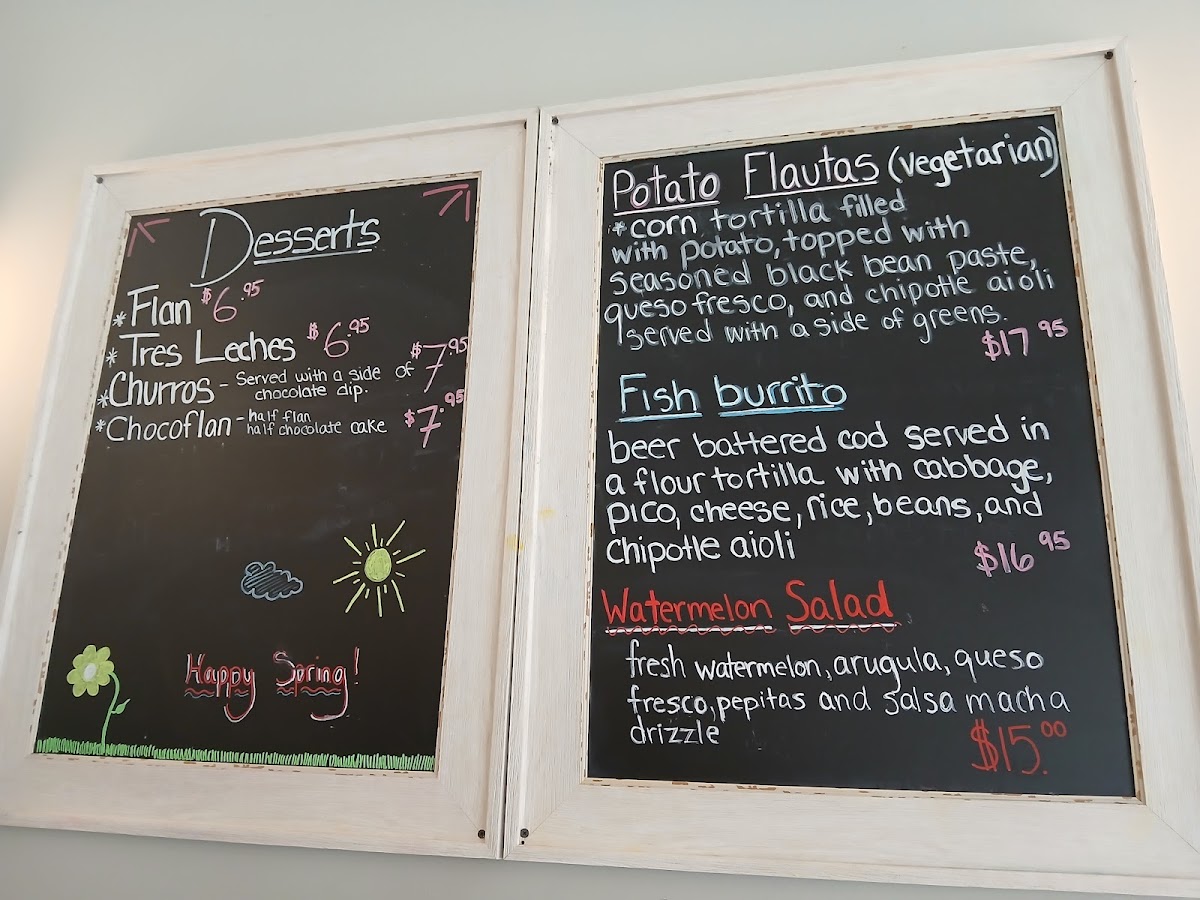 Desserts
*Flan $6.95
*Tres Leches $6.95
*Churros - Served with a side of chocolate dip. $7.95
*Chocoflan - half flan half chocolate cake $7.95
Happy Spring!
Potato Flautas (vegetarian)
*corn tortilla filled
with potato, topped with
seasoned black bean paste,
queso fresco, and chipotle aioli
served with a side of greens.
$17.95
Fish burrito
beer battered cod served in
a flour tortilla with cabbage,
pico, cheese, rice, beans, and
Chipotle aioli
$16.95
Watermelon Salad
fresh watermelon, arugula, queso
fresco, pepitas and salsa macha
drizzle
$15.00